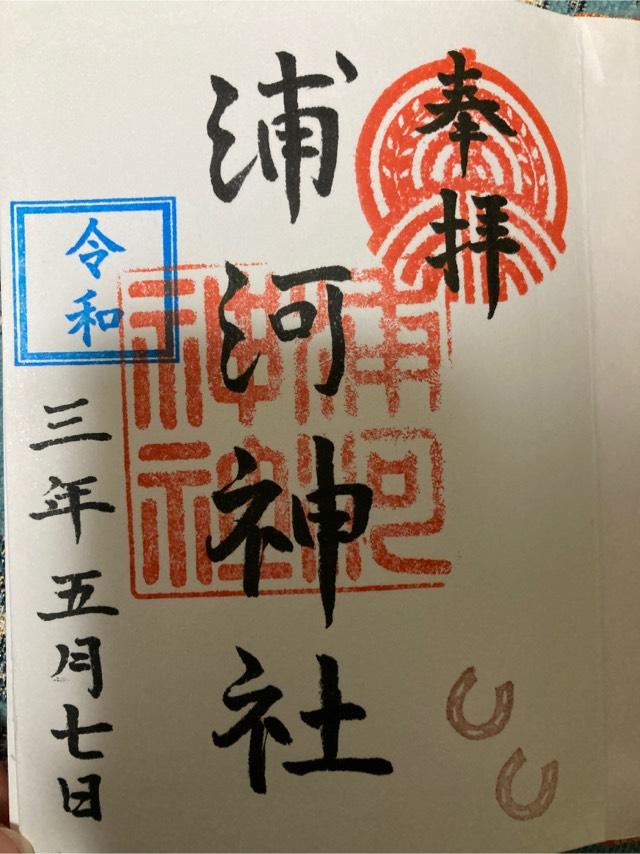 奉拝
浦河神社
浦河
神社
令和
三年五月七日